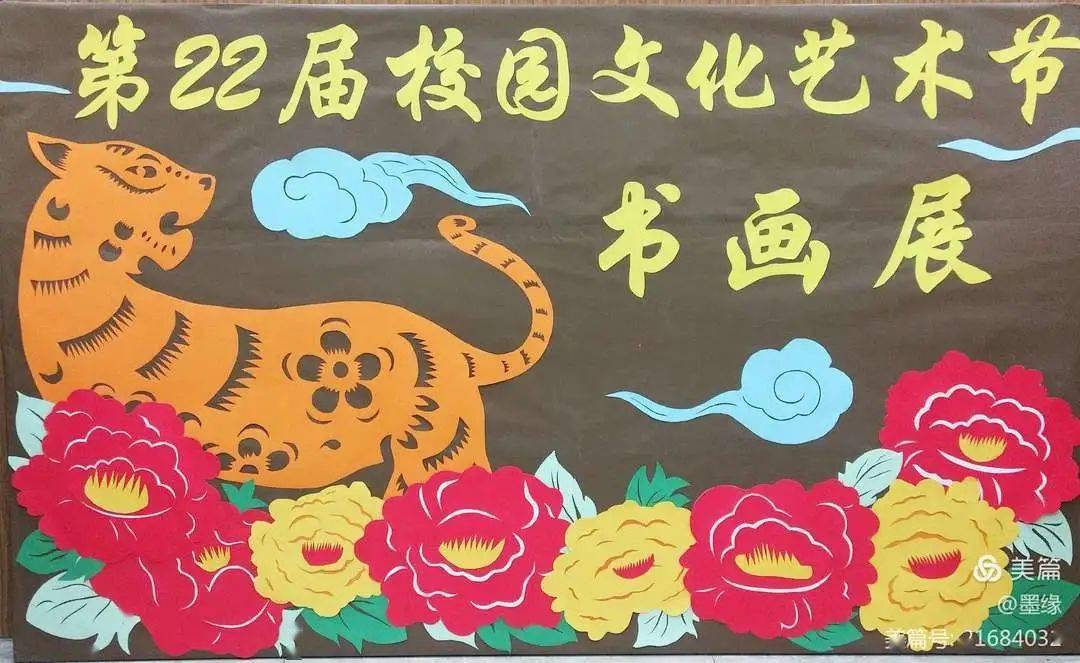 第22届校园文化艺术节
书画展
美篇
@墨缘
美篇号: